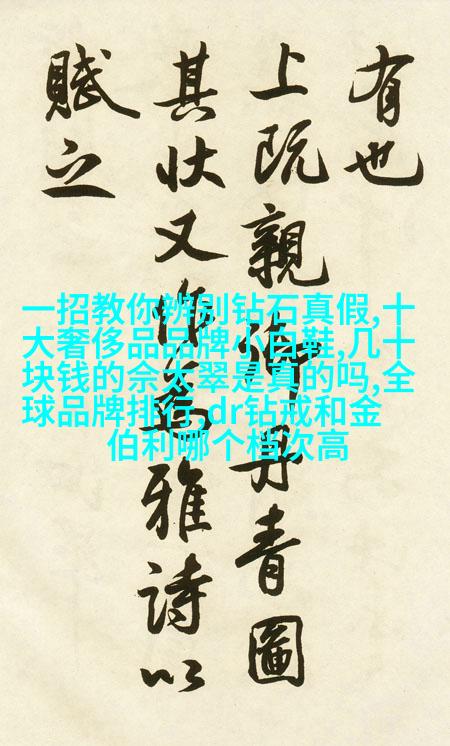 有也
上既親御丹青圖
其状又作為雅詩以
賦之
一招教你辨别钻石真假,十
大奢侈品品牌小白鞋,几十
块钱的佘太翠是真的吗,全
球品牌排行,dr钻戒和金
伯利哪个档次高